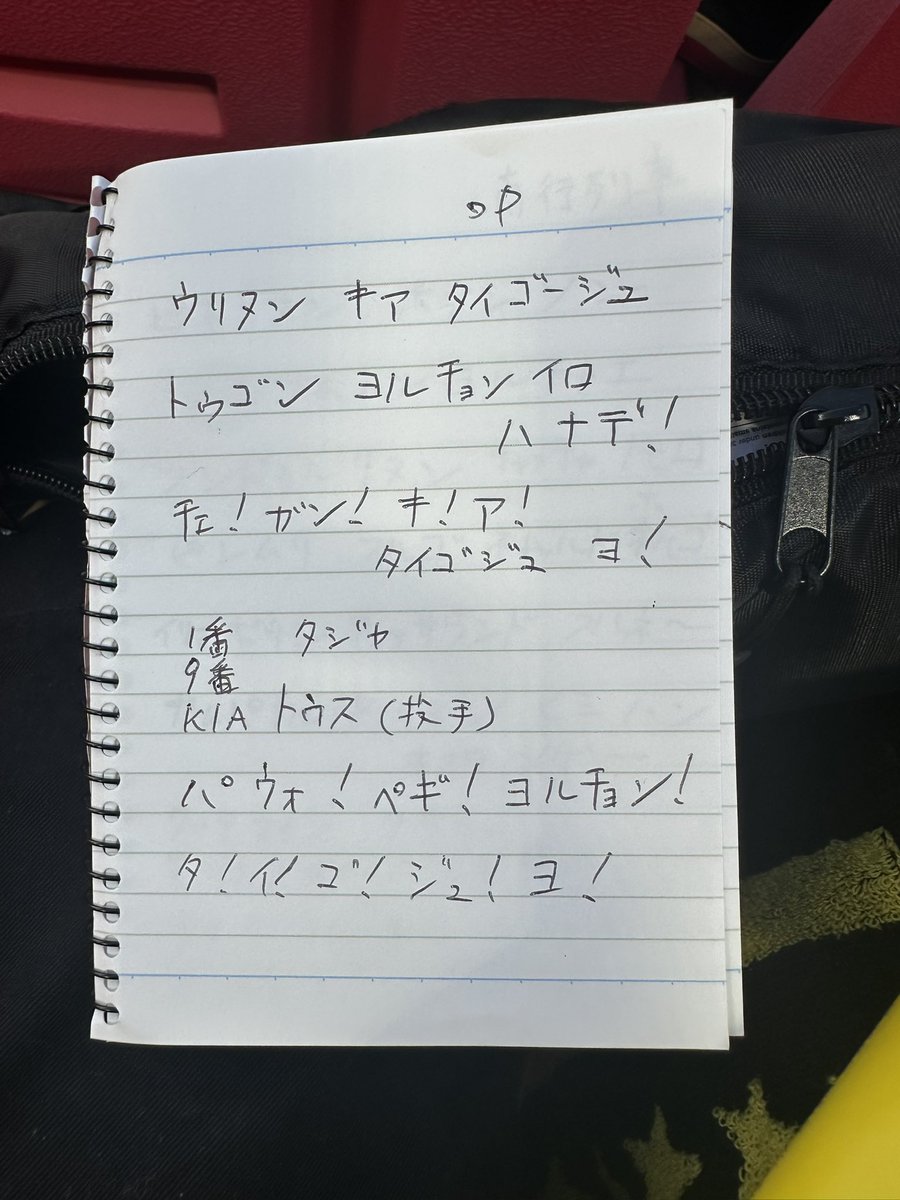 OP
ウリヌン キア タイゴージュ
トゥゴン ヨルチョンイロ
ハナデ!
チェ! ガン! キ! ア!
タイゴジュ ヨ!
1番 タジャ
9番
KIA トウス (投手)
パウォ! ペギ! ヨルチョン!
タ! イ! ゴ! ジュ! ヨ!